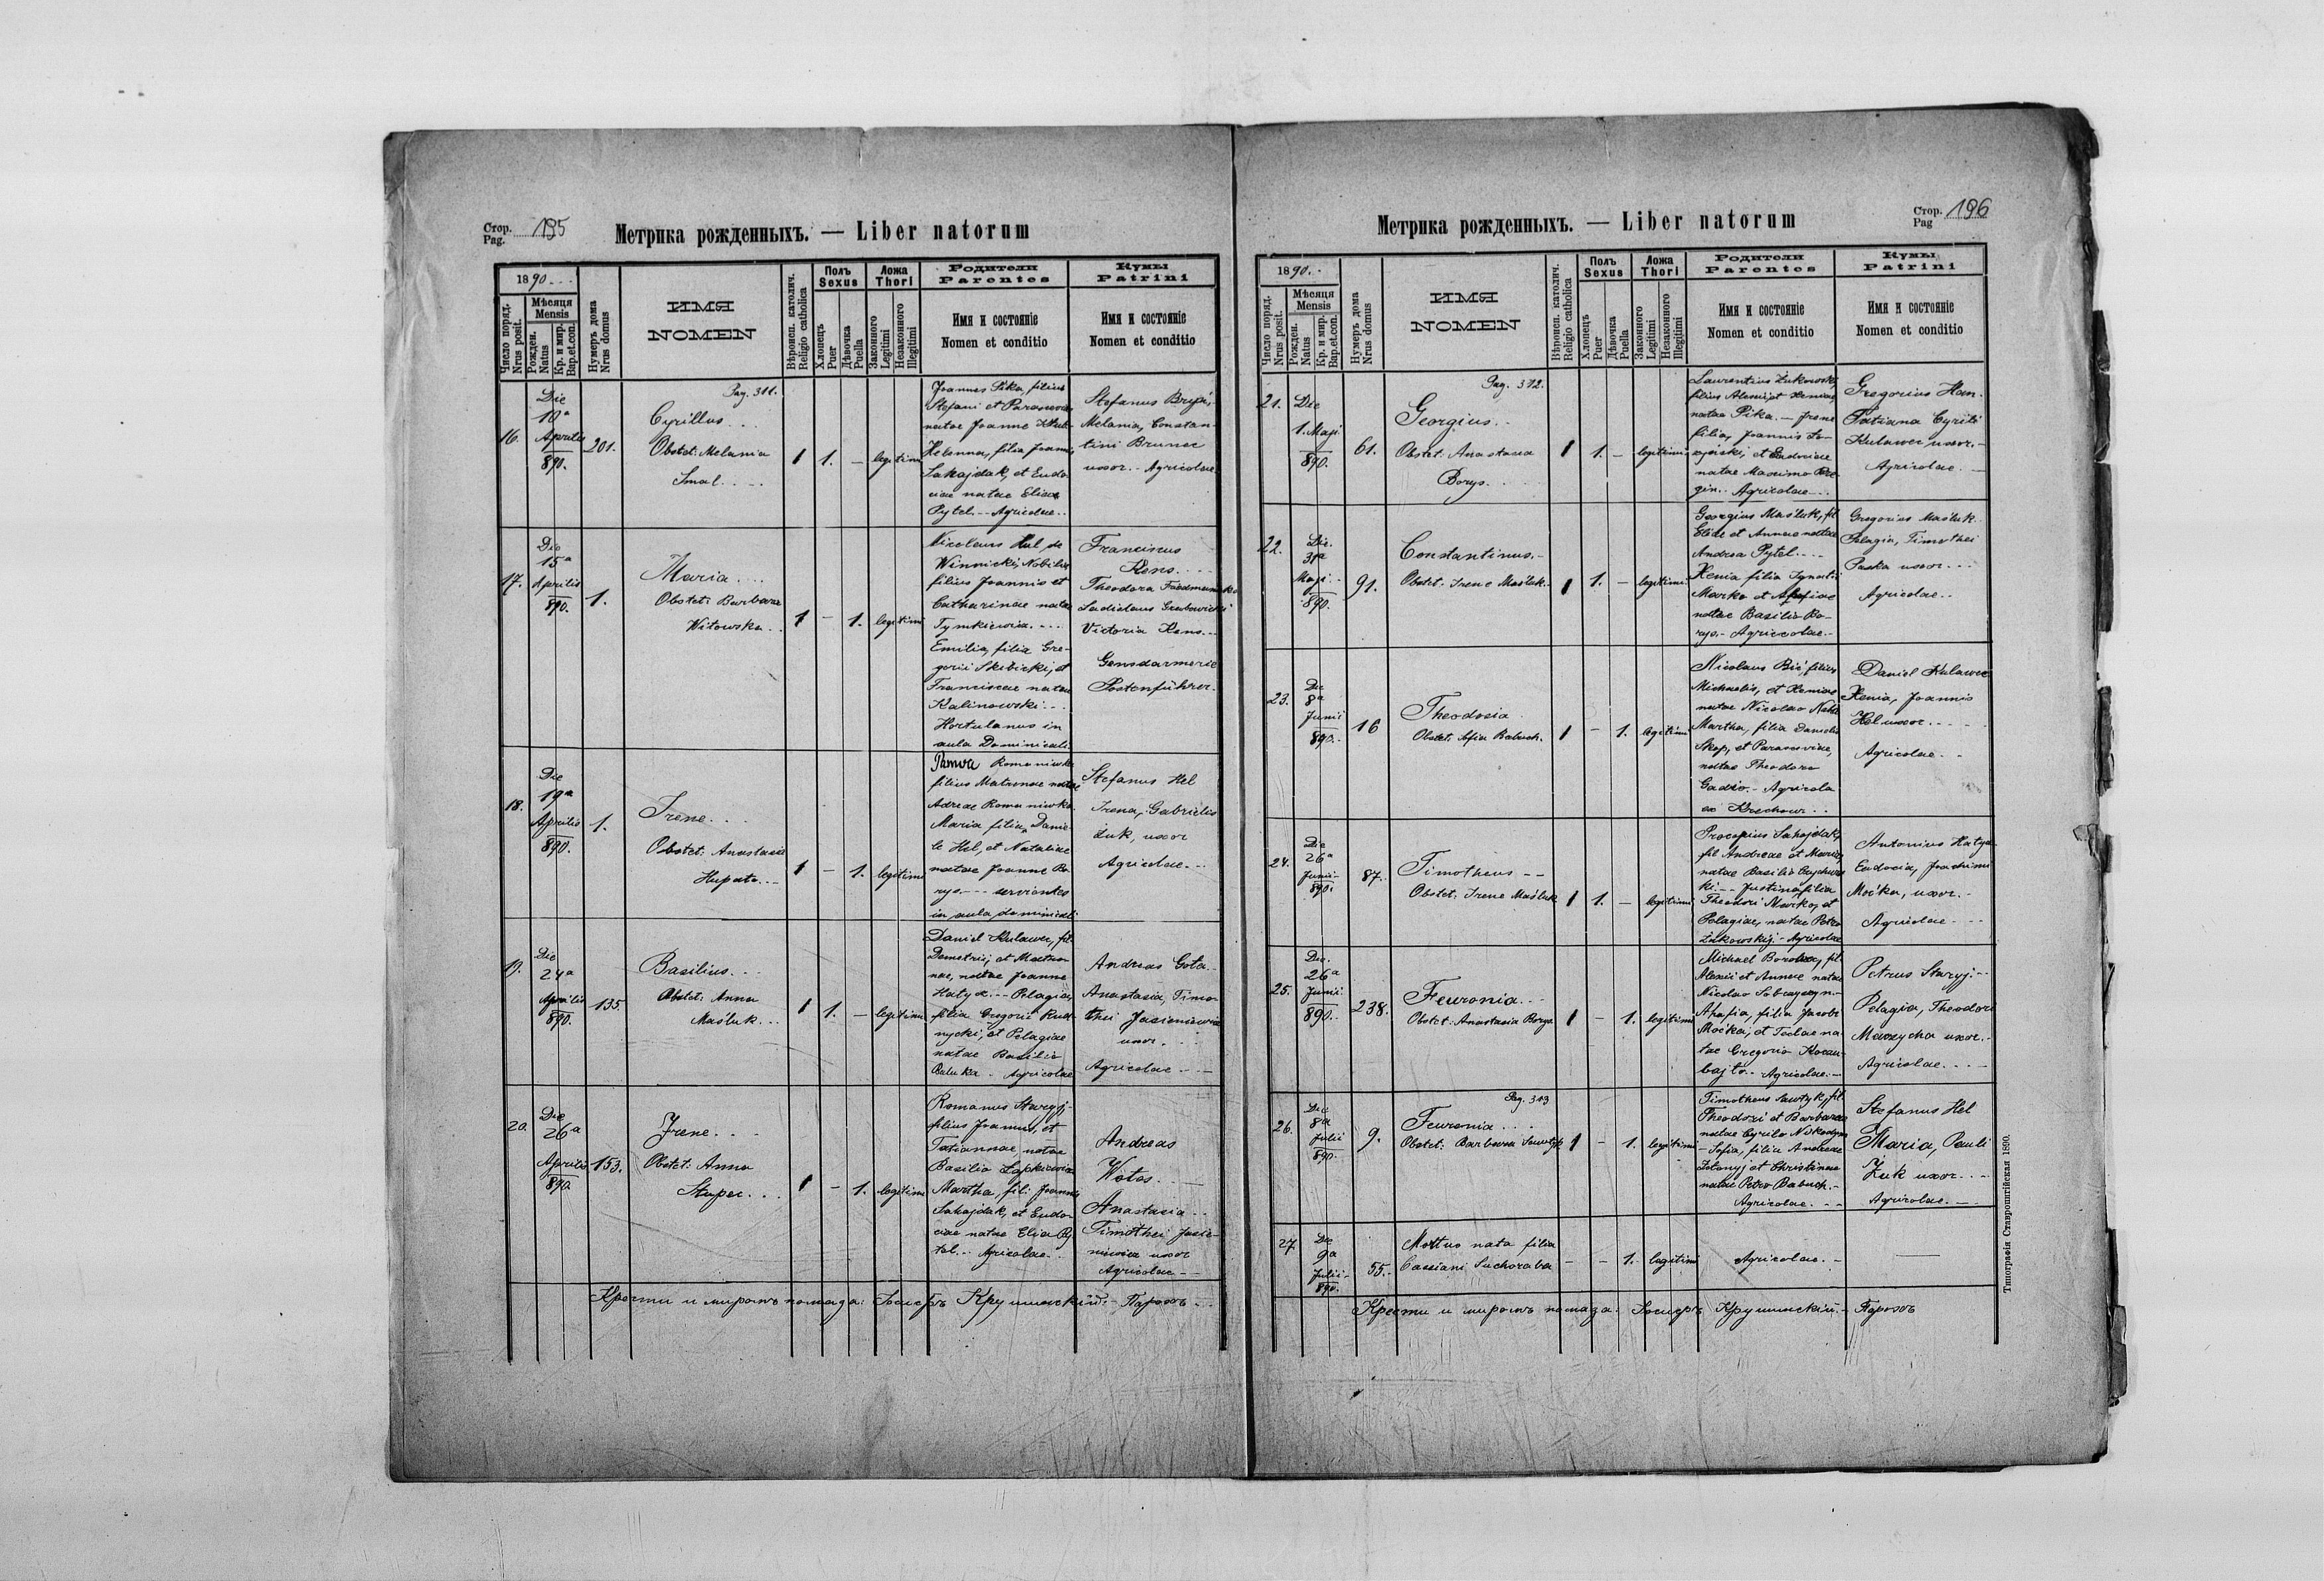 Стор. Pag. 195
Метрика рожденныхъ. — Liber natorum
1890
Число поряд. Nrus posit.
Мѣсяця Mensis
Рожден. Natus
Кр. и мир. Bap.et.con.
Нумеръ дома Nrus domus
ИМЯ
NOMEN
Вѣроисп. католич. Religio catholica
Полъ Sexus
Хлопець Puer
Дѣвочка Puella
Ложа Thori
Законного Legitimi
Незаконного Illegitimi
Родители
Parentes
Имя и состояніе
Nomen et conditio
Кумы
Patrini
Имя и состояніе
Nomen et conditio
Pag. 311.
16.
Die
10a
Aprilis
890.
201.
Cyrillus
Obstet: Melania
Smal
1 1. — legitimi
Joannes Pika, filius
Stefani et Parasceviae
natae Joanne
Helenna, filia Joannis
Sahajdak, et Eudo-
ciae natae Eliae
Pytel. - Agricolae
Stefanus
Melania, Constan-
tini Brunec
uxor. - Agricolae
17.
Die
15a
Aprilis
890.
1.
Maria
Obstet: Barbara
Witowska
1 — 1. legitimi
Nicolaus Hul de
Winnicki, Nobilis
filius Joannis et
Catharinae natae
Tymkiewicz
Emilia, filia Gre-
gorii Skibicki, et
Franciscae natae
Kalinowski
Hortulanus in
aula Dominicali
Franciscus
Kens
Theodora
Ladislaus Grabowicki
Victoria Kens
Gensdarmerie
Postenführer.
18.
Die
19a
Aprilis
890.
1.
Irene
Obstet: Anastasia
Hupato
1 — 1. legitimi
Romaniwka
filius Matronae natae
Adreae Romaniwka
Maria filia Danie-
le Hel, et Nataliae
natae Joanne Bo-
rys. - servientes
in aula dominicali
Stefanus Hel
Irena, Gabrielis
Żuk, uxor
Agricolae
19.
Die
24a
Aprilis
890.
135.
Basilius
Obstet: Anna
Maśluk
1 1. — legitimi
Daniel Kulawec, fil.
Demetrij, et Matro-
nae, natae Joanne
Hatyd. - Pelagia,
filia Gregorii Rud-
nycki, et Pelagiae
natae Basilio
Baluka. Agricolae
Andreas Gota
Anastasia, Timo-
thei Jasieniewicz
uxor.
Agricolae
20.
Die
26a
Aprilis
890.
153.
Irene
Obstet: Anna
Stupec
1 — 1. legitimi
Romanus Staryj
filius Joannis, et
Tatiannae, natae
Basilio Lapkiewicz
Martha, fil: Joannis
Sahajdak, et Eudo-
ciae natae Elia Py-
tel. - Agricolae
Andreas
Witos
Anastasia
Timothei Jasie-
niewicz uxor
Agricolae
Крести и миромъ помаза: Іосифъ Крушинскій - Парохъ
Стор. Pag 196
Метрика рожденныхъ. — Liber natorum
1890.
Число поряд. Nrus posit.
Мѣсяця Mensis
Рожден. Natus
Кр. и мир. Bap.et.con.
Нумеръ дома Nrus domus
ИМЯ
NOMEN
Вѣроисп. католич. Religio catholica
Полъ Sexus
Хлопець Puer
Дѣвочка Puella
Ложа Thori
Законного Legitimi
Незаконного Illegitimi
Родители
Parentes
Имя и состояніе
Nomen et conditio
Кумы
Patrini
Имя и состояніе
Nomen et conditio
Pag. 312.
21.
Die
1. Maji
890.
61.
Georgius
Obstet. Anastasia
Borys
1 1. — legitimi
Laurentius Żukowski,
filius Alexii, et Xeniae,
natae Pika. - Irene
filia, Joannis
et Eudociae
natae Maximo
Agricolae
Gregorius Han
Tatiana Cyrili
Kulawec uxor.
Agricolae
22.
Die
31a
Maji
890.
91.
Constantinus
Obstet. Irene Maśluk
1 1. — legitimi
Georgius Maśluk, fil.
Eliae et Annae natae
Andrea Pytel
Xenia filia Ignatii
Marko et Ahafiae
natae Basilio Bo-
rys. - Agricolae
Gregorius Maśluk
Pelagia, Timothei
Paska uxor
Agricolae
23.
Die
8a
Junii
890.
16
Theodosia
Obstet. Sofia Babuch.
1 — 1. legitimi
Nicolaus Bić, filius
Michaelis, et Xeniae
natae Nicolao
Martha, filia Danielis
Skop, et Parasceviae,
natae Theodoro
Gadzo. - Agricola
ex Krechow
Daniel Kulawec
Xenia, Joannis
Hel uxor
Agricolae
24.
Die
26a
Junii
890.
87.
Timotheus
Obstet. Irene Maśluk
1 1. — legitimi
Procopius Sahajdak,
fil Andreae et Maria,
natae Basilio
Justina filia
Theodori Marko, et
Pelagiae, natae Petro
Żukowskij - Agricolae
Antonius Hatyd
Eudocia, Joachimi
Moćka, uxor.
Agricolae
25.
Die
26a
Junii
890.
238.
Feuronia
Obstet: Anastasia Borys
1 — 1. legitimi
Michael fil.
Alexii et Annae natae
Nicolao
Ahafia, filia Jacobi
Moćka, et Teclae na-
tae Gregorio
Agricolae.
Petrus Staryj
Pelagia, Theodori
Maxycha uxor.
Agricolae
Pag. 313
26.
Die
8a
Julii
890.
9.
Feuronia
Obstet: Barbara Sawtyk
1 — 1. legitimi
Timotheus Sawtyk, fil.
Theodori et Barbarae
natae Cyrilo
Sofia, filia Andreae
et Christinae
natae Petro Babuch.
Agricolae
Stefanus Hel
Maria, Pauli
Żuk uxor
Agricolae
27
Die
9a
Julii
890.
55.
Mortuo nata filia
Cassiani Suchoraba
— — 1. legitimi
Agricolae. —
Крести и миромъ помаза: Іосифъ Крушинскій - Парохъ
Типографія Ставропигійская 1890.